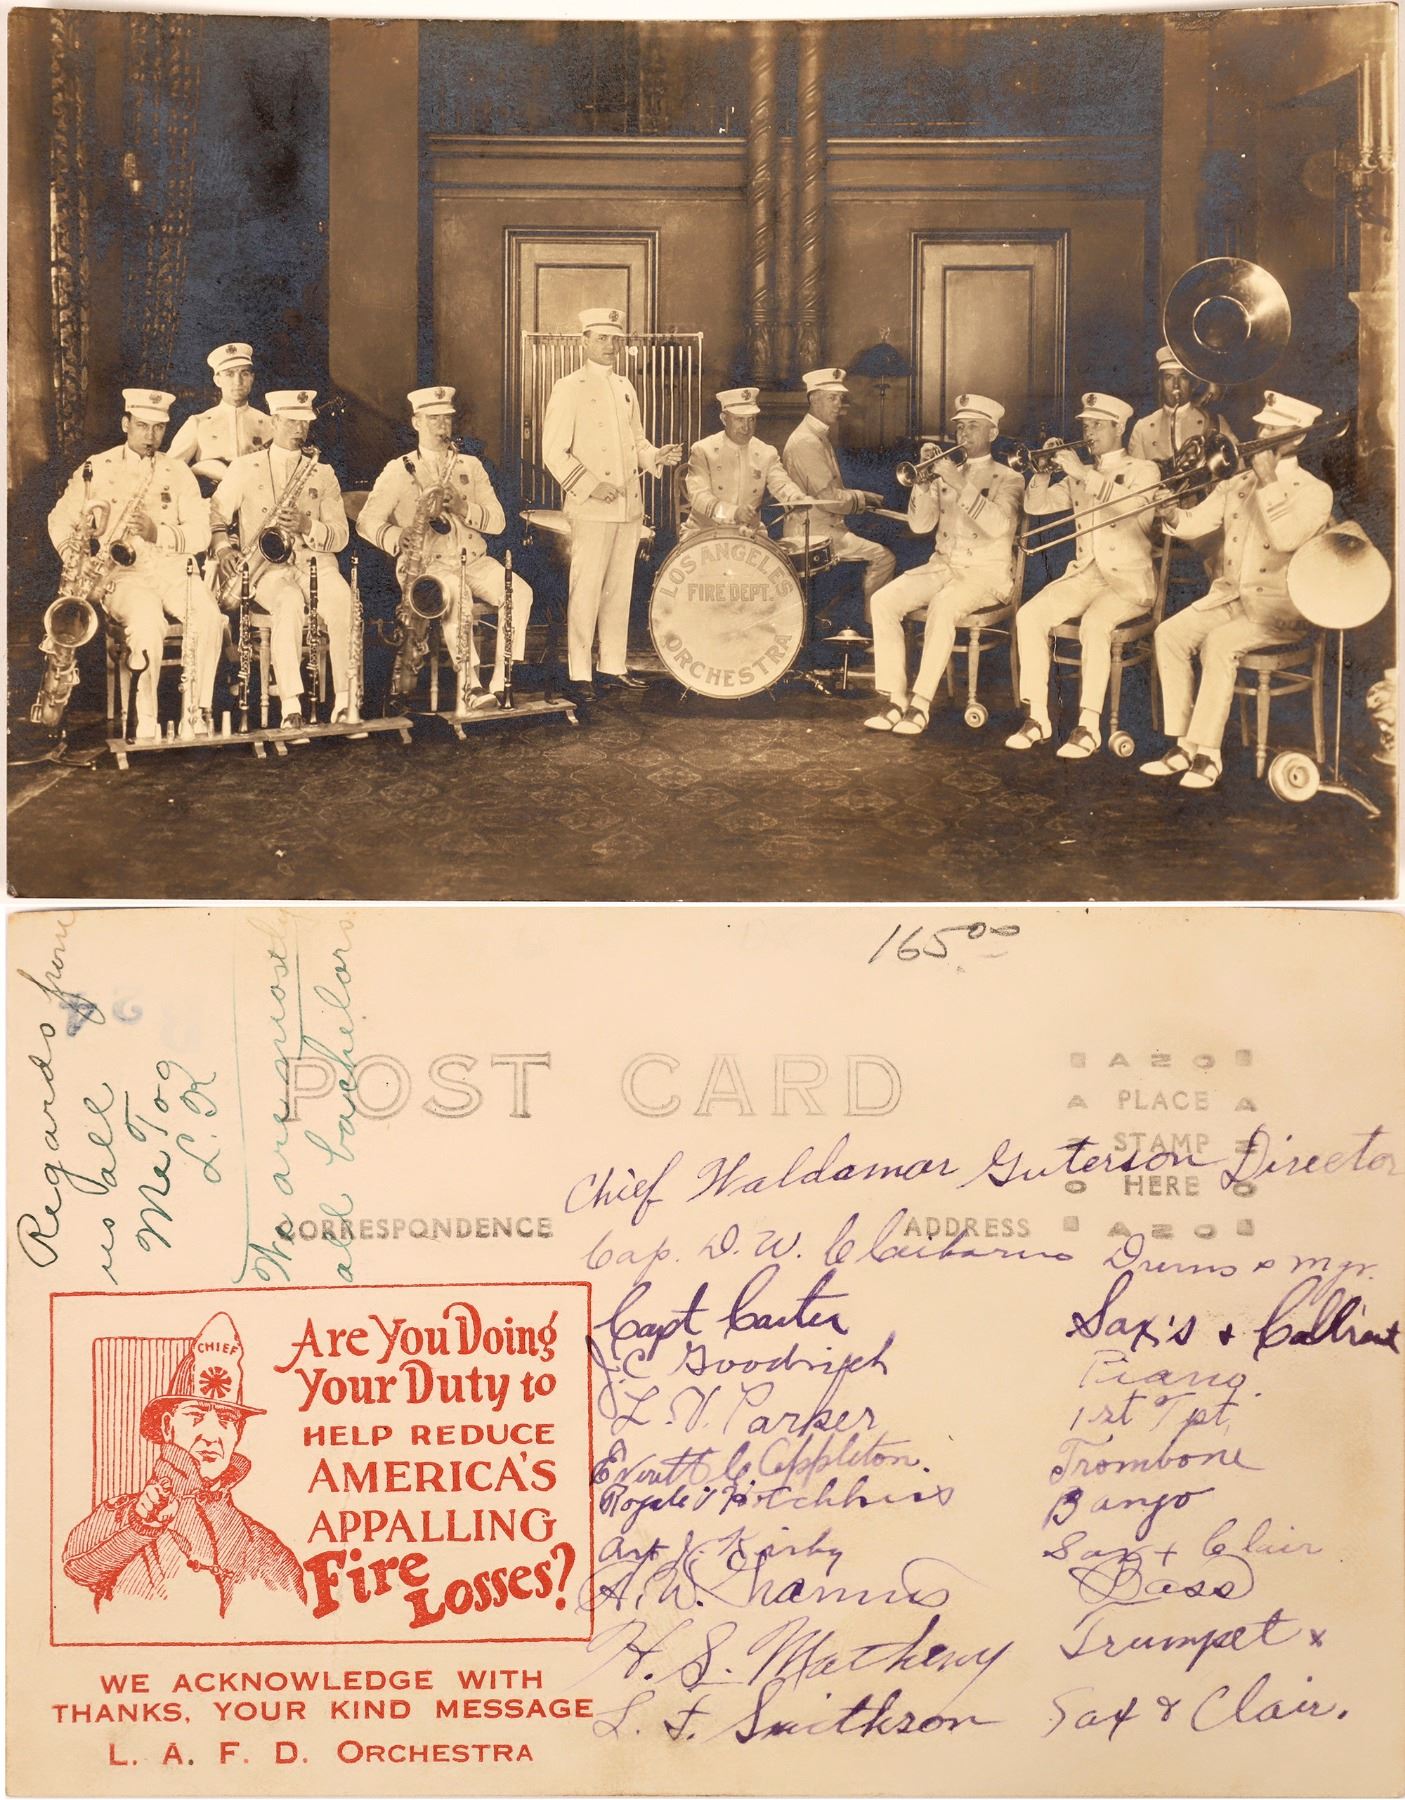 LOS ANGELES
FIRE DEPT.
ORCHESTRA
165.00
Regards from
us all
Me Too
L. K
We are mostly
all bachelors
POST CARD
AZO
PLACE
STAMP
HERE
AZO
CORRESPONDENCE
ADDRESS
Chief Waldamar Guterson Director
Cap. D. W. Claibourne Drums & Mgr.
Capt Carter Sax's &
J.C. Goodrich Piano.
L. V. Parker 1st Tpt,
Everett C. Appleton. Trombone
Hotchkiss Banjo
Art J. Kirby Sax + Clair
A. W. Bass
H. S. Matheny Trumpet x
L. F. Smithson Sax & Clair.
CHIEF
Are You Doing
Your Duty to
HELP REDUCE
AMERICA'S
APPALLING
Fire
Losses?
WE ACKNOWLEDGE WITH
THANKS, YOUR KIND MESSAGE
L. A. F. D. ORCHESTRA